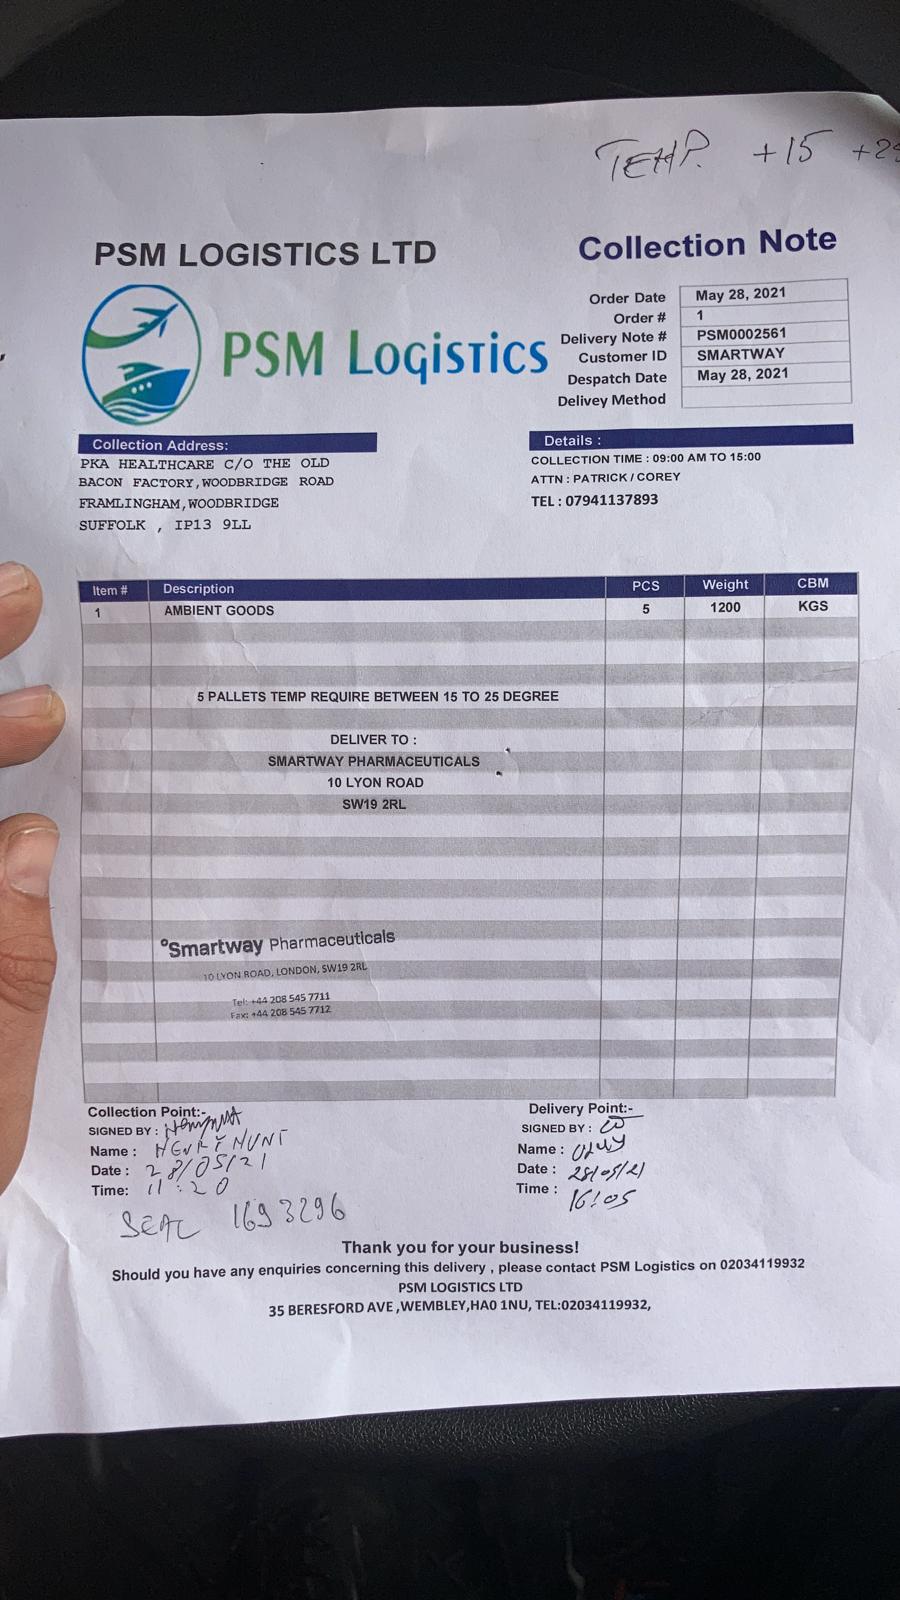 TEMP. +15
PSM LOGISTICS LTD
Collection Note
PSM Logistics
Order Date May 28, 2021
Order # 1
Delivery Note # PSM0002561
Customer ID SMARTWAY
Despatch Date May 28, 2021
Delivey Method
Collection Address:
PKA HEALTHCARE C/O THE OLD
BACON FACTORY,WOODBRIDGE ROAD
FRAMLINGHAM,WOODBRIDGE
SUFFOLK , IP13 9LL
Details :
COLLECTION TIME : 09:00 AM TO 15:00
ATTN : PATRICK / COREY
TEL : 07941137893
Item # Description PCS Weight CBM
1 AMBIENT GOODS 5 1200 KGS
5 PALLETS TEMP REQUIRE BETWEEN 15 TO 25 DEGREE
DELIVER TO :
SMARTWAY PHARMACEUTICALS
10 LYON ROAD
SW19 2RL
Smartway Pharmaceuticals
10 LYON ROAD, LONDON, SW19 2RL
Tel: +44 208 545 7711
Fax: +44 208 545 7712
Collection Point:-
SIGNED BY :
Name : HENRY HUNT
Date : 28/05/21
Time: 11:20
SEAL 1693296
Delivery Point:-
SIGNED BY :
Name :
Date : 28/05/21
Time : 16:05
Thank you for your business!
Should you have any enquiries concerning this delivery , please contact PSM Logistics on 02034119932
PSM LOGISTICS LTD
35 BERESFORD AVE ,WEMBLEY,HA0 1NU, TEL:02034119932,